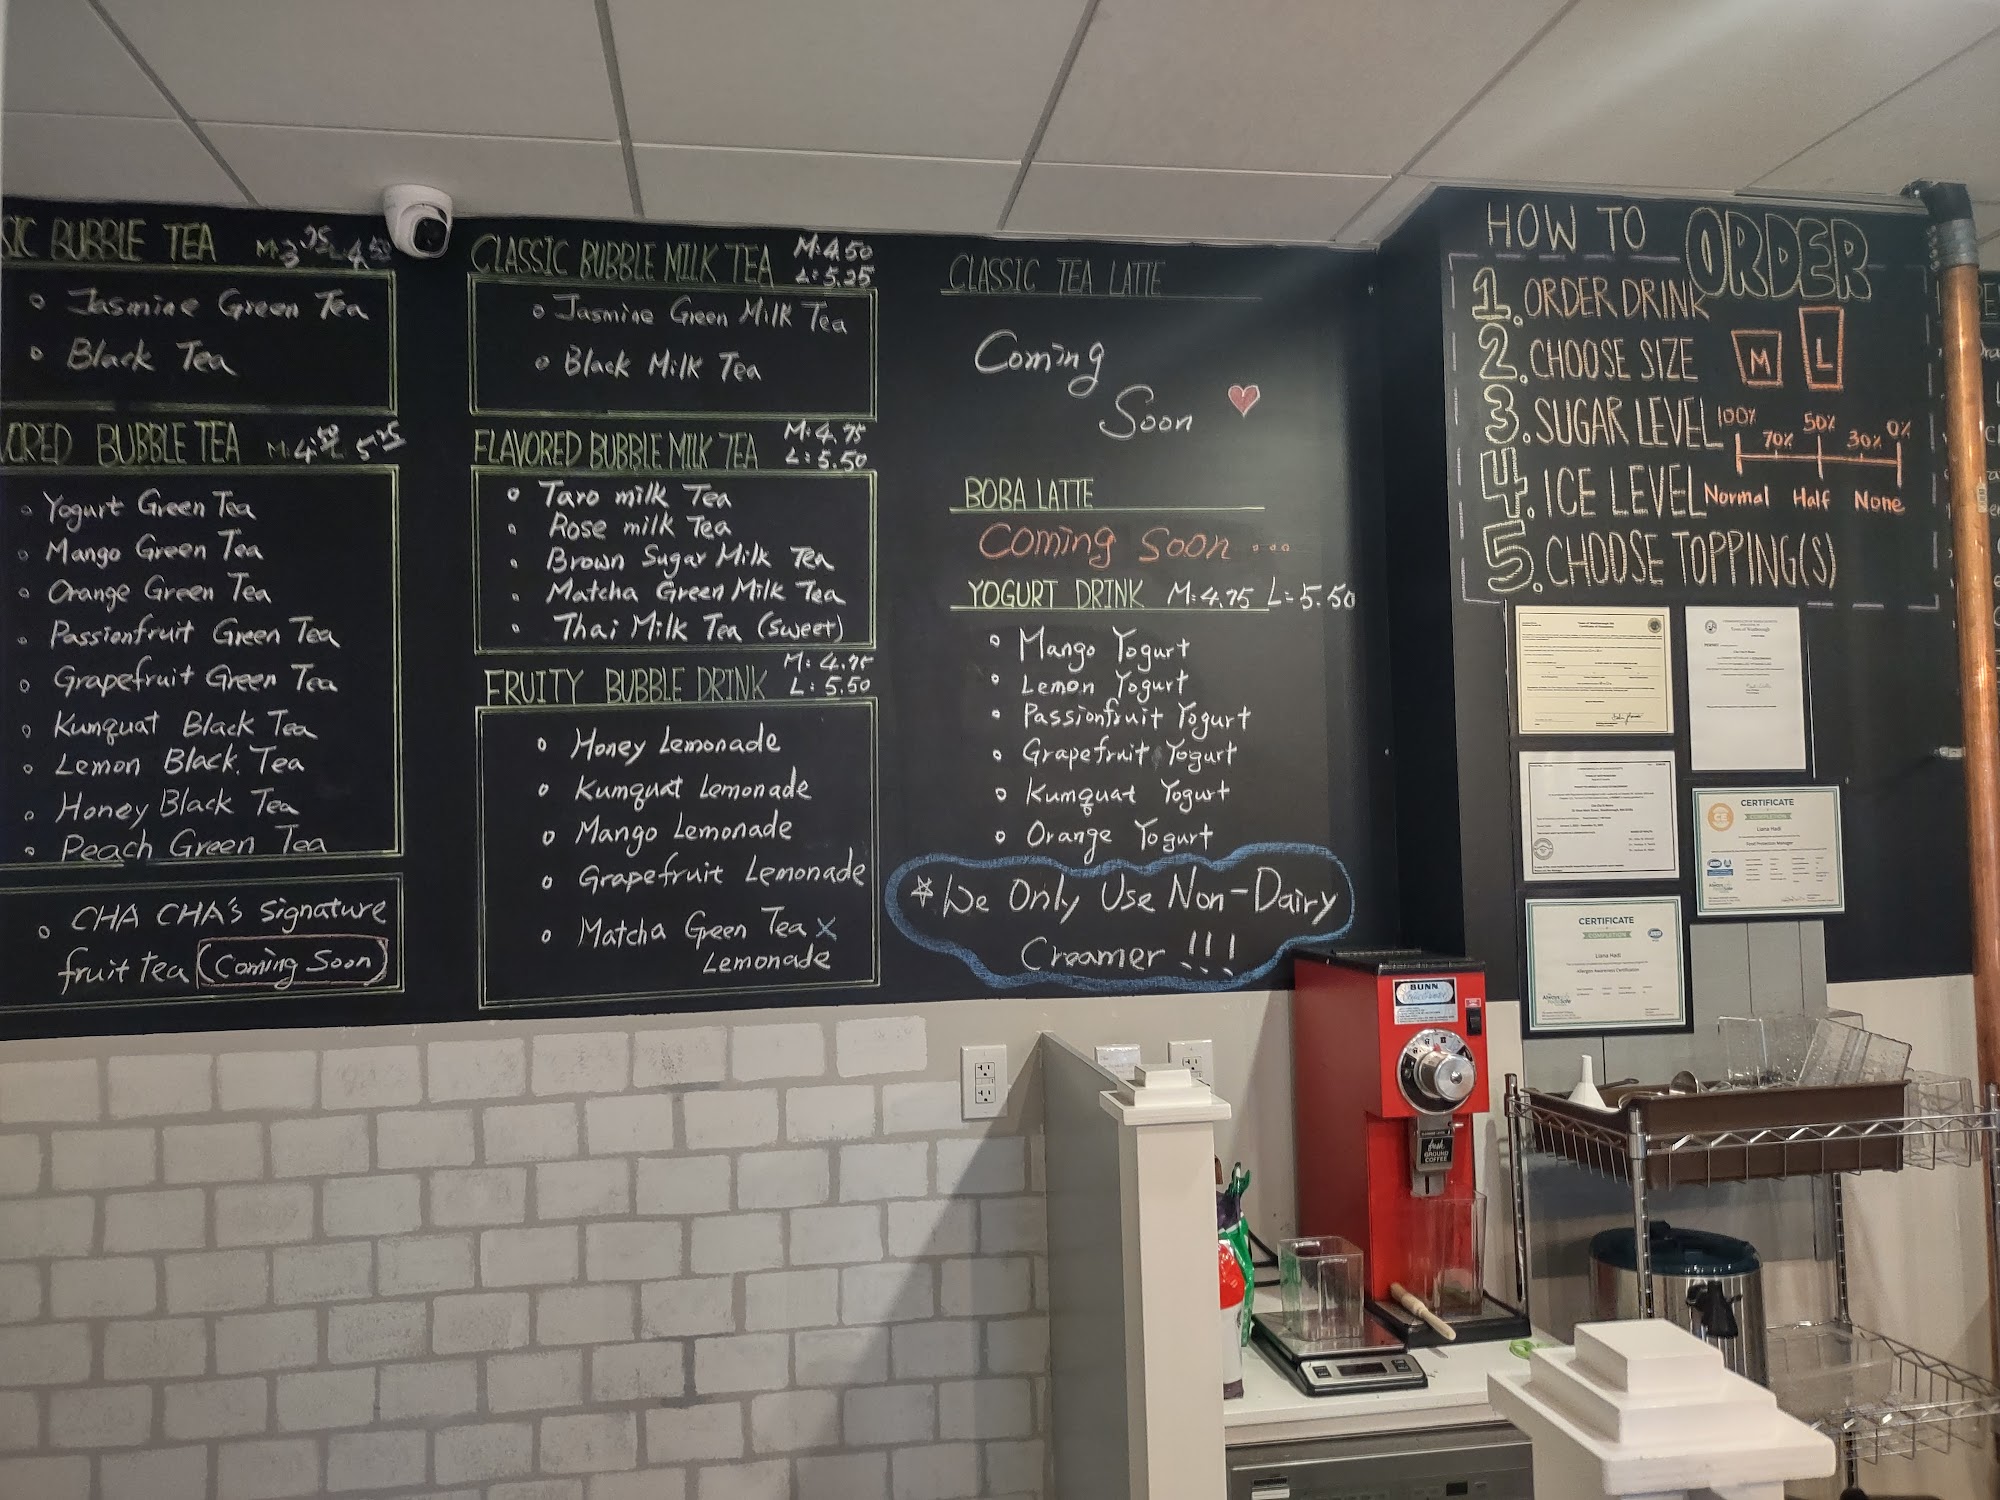 BUBBLE TEA M:3.75 L:4.50
Jasmine Green Tea
Black Tea
BUBBLE TEA M:4.50 5.25
Yogurt Green Tea
Mango Green Tea
Orange Green Tea
Passionfruit Green Tea
Grapefruit Green Tea
Kumquat Black Tea
Lemon Black Tea
Honey Black Tea
Peach Green Tea
CHA CHA's signature
fruit tea Coming Soon
CLASSIC BUBBLE MILK TEA M:4.50
L:5.25
Jasmine Green Milk Tea
Black Milk Tea
FLAVORED BUBBLE MILK TEA M:4.75
L:5.50
Taro milk Tea
Rose milk Tea
Brown Sugar Milk Tea
Matcha Green Milk Tea
Thai Milk Tea (sweet)
FRUITY BUBBLE DRINK M:4.75
L:5.50
Honey Lemonade
Kumquat Lemonade
Mango Lemonade
Grapefruit Lemonade
Matcha Green Tea X
Lemonade
CLASSIC TEA LATTE
Coming
Soon
BOBA LATTE
Coming Soon ...
YOGURT DRINK M:4.75 L:5.50
Mango Yogurt
Lemon Yogurt
Passionfruit Yogurt
Grapefruit Yogurt
Kumquat Yogurt
Orange Yogurt
*We Only Use Non-Dairy
Creamer!!!
HOW TO ORDER
1. ORDER DRINK
2. CHOOSE SIZE M L
3. SUGAR LEVEL 100% 70% 50% 30% 0%
4. ICE LEVEL Normal Half None
5. CHOOSE TOPPING(S)
CERTIFICATE
COMPLETION
Liana Hadi
Food Protection Manager
CERTIFICATE
COMPLETION
Liana Hadi
Allergen Awareness Certification
BUNN
fresh
GROUND
COFFEE